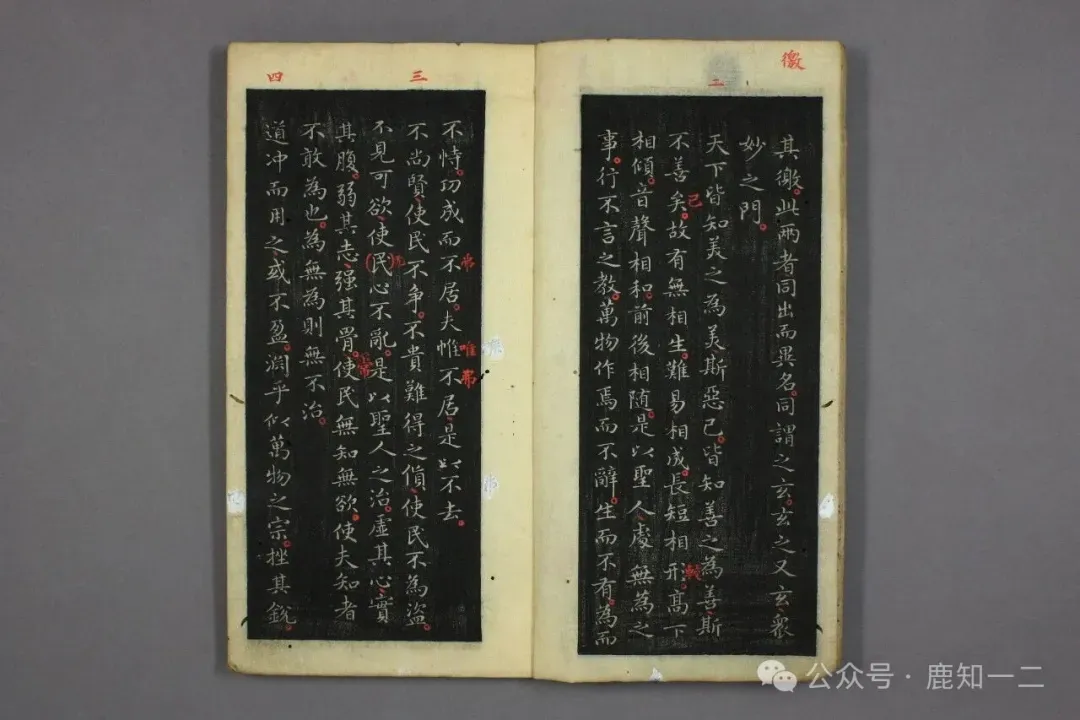 徼
其徼。此兩者同出而異名。同謂之玄。玄之又玄。衆
妙之門。
二
天下皆知美之為美。斯惡已。皆知善之為善。斯
已
不善矣。故有無相生。難易相成。長短相形。高下
較
相傾。音聲相和。前後相隨。是以聖人處無為之
事。行不言之教。萬物作焉而不辭。生而不有。為而
不恃。功成而不居。夫惟不居。是以不去。
弗
唯
弗
三
不尚賢。使民不争。不貴難得之貨。使民不為盜。
不見可欲。使民心不亂。是以聖人之治。虛其心。實
其腹。弱其志。强其骨。使民無知無欲。使夫知者
不敢為也。為無為則無不治。
四
道冲而用之。或不盈。淵乎似萬物之宗。挫其銳。
公众号·鹿知一二